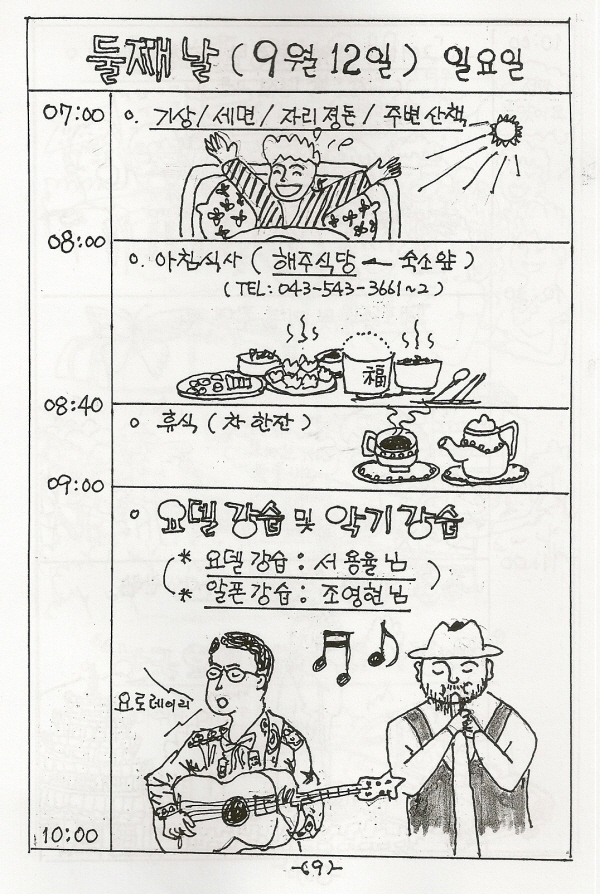 둘째 날 (9월 12일) 일요일
07:00
o. 기상/세면/자리정돈/주변산책
08:00
o. 아침식사 (해주식당 ← 숙소앞)
(TEL: 043-543-3661~2)
福
08:40
o 휴식 (차 한잔)
09:00
o 요델 강습 및 악기 강습
* 요델 강습 : 서용율님
* 알폰 강습 : 조영현님
요로레이리
10:00
-69-